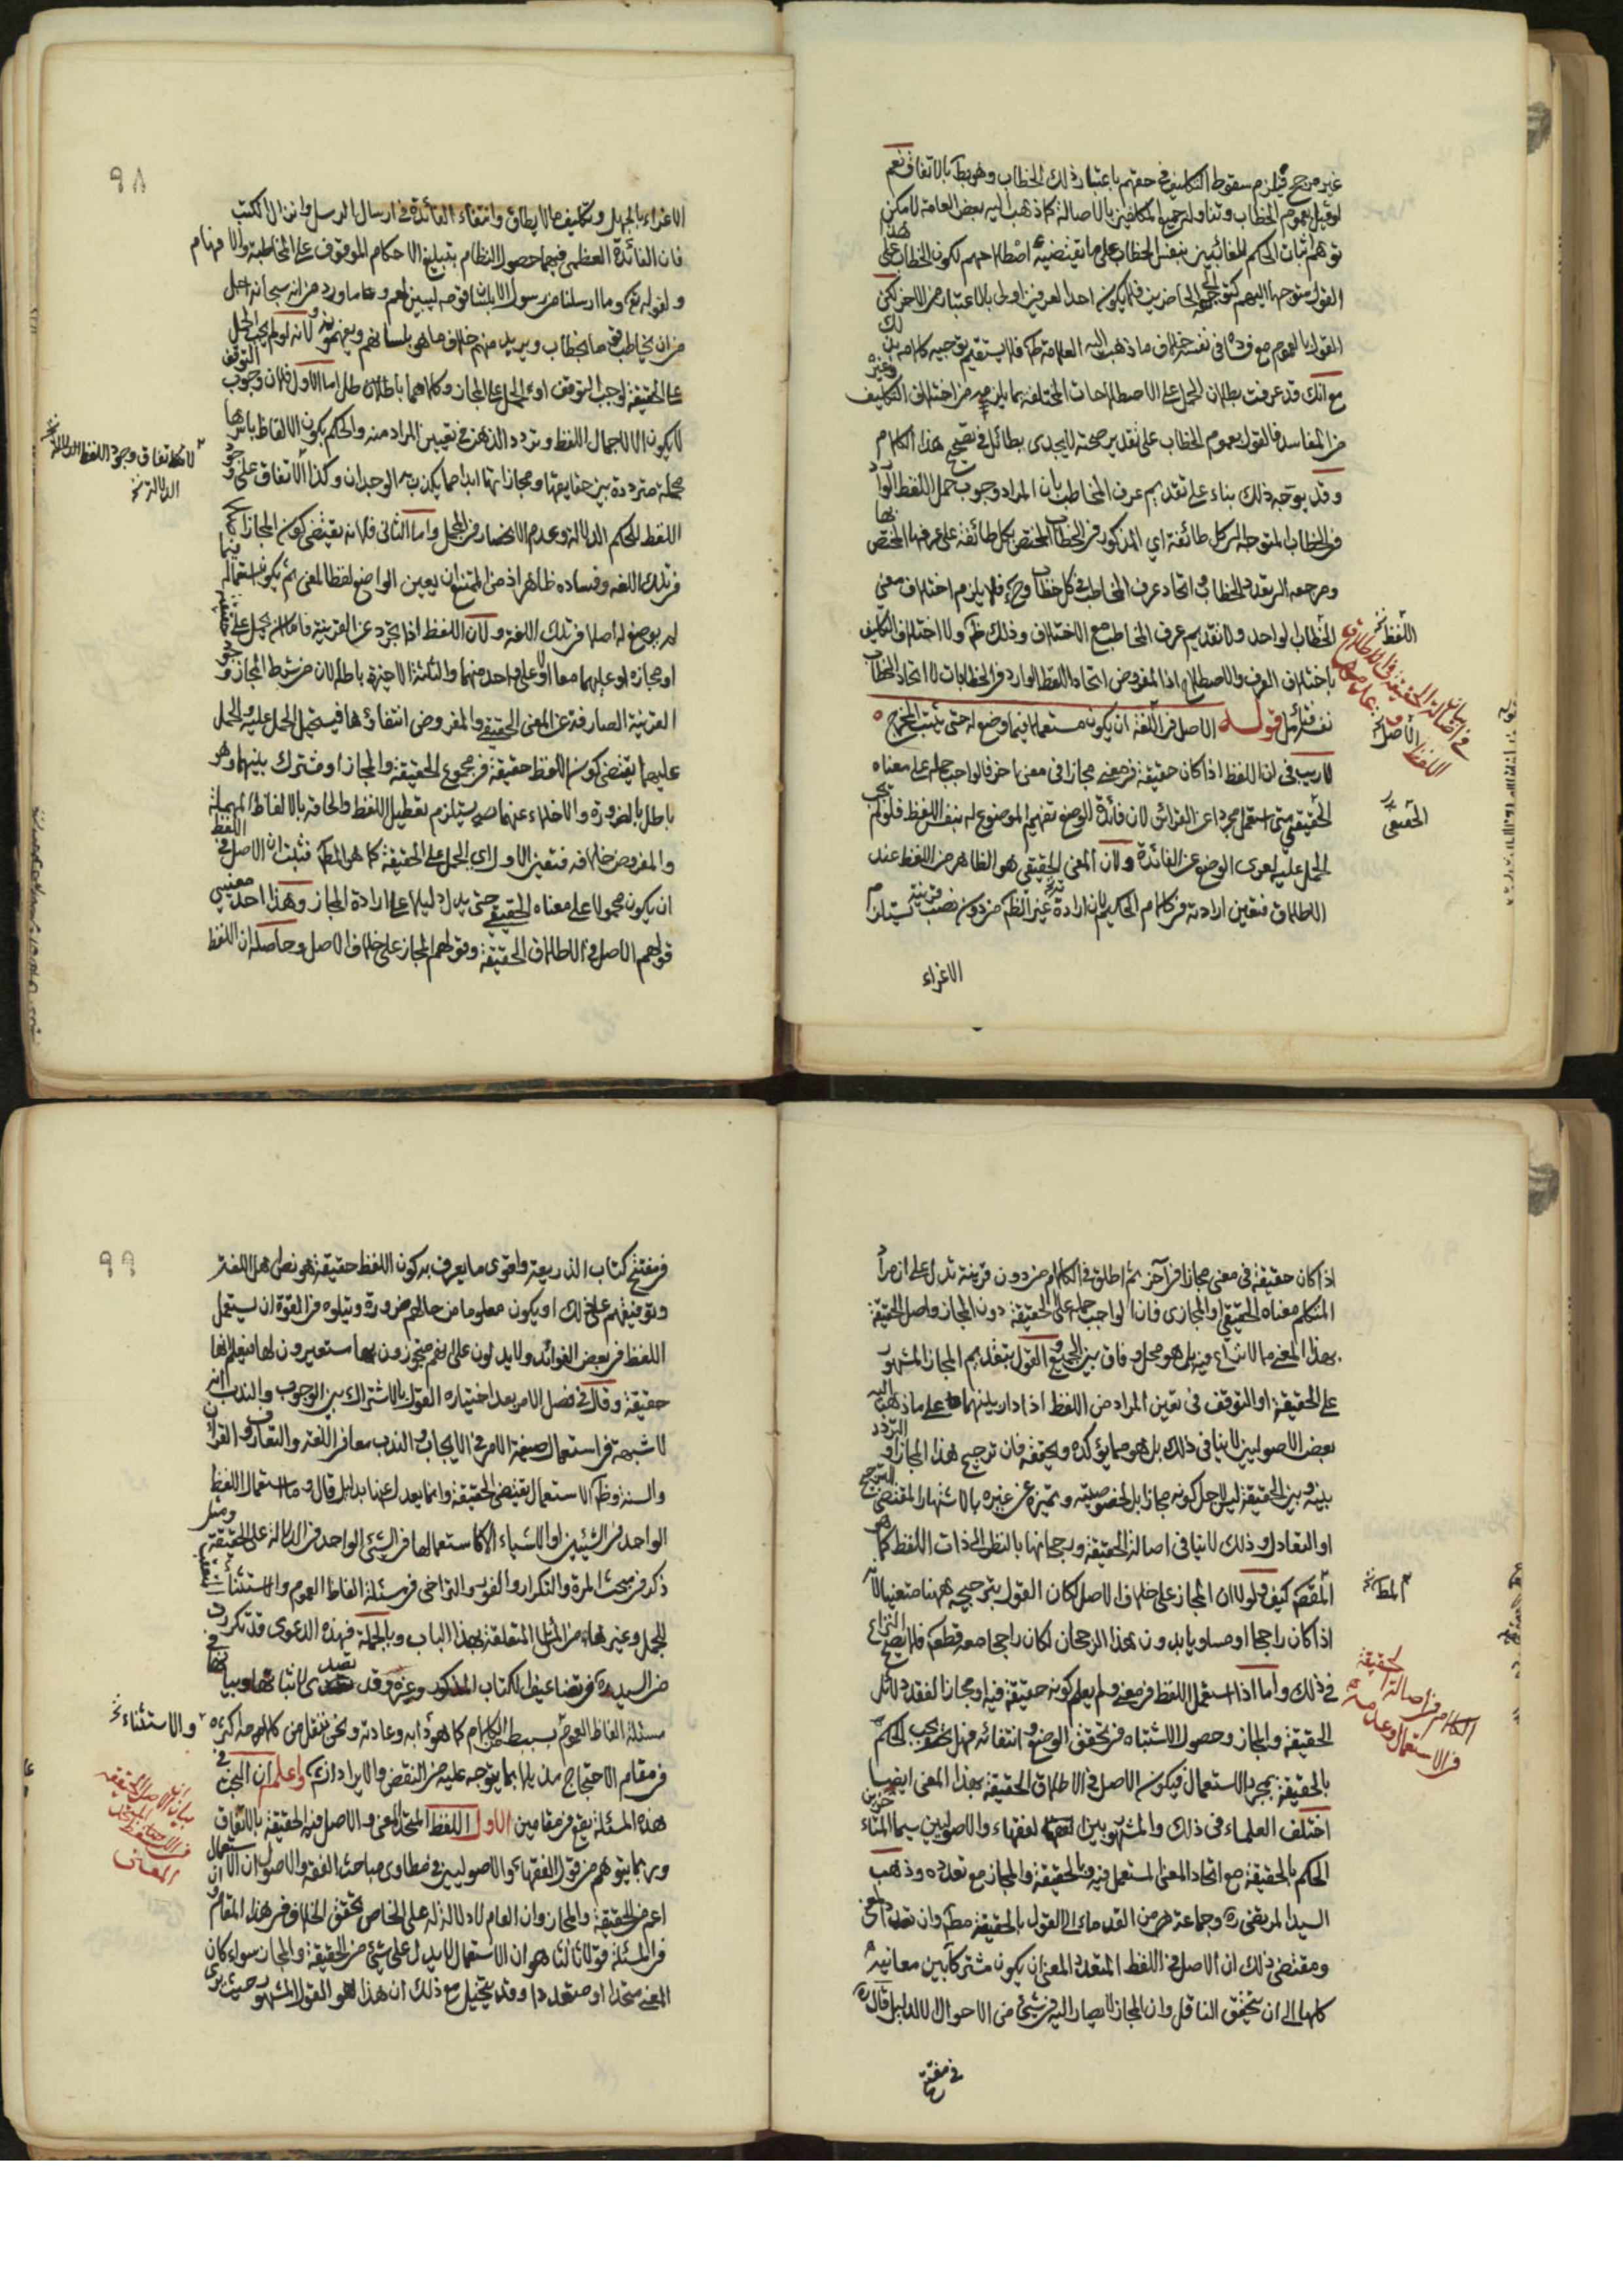 غير مرجح فيلزم سقوط التكليف في حقهم باعتبار ذلك الخطاب وهو بط بالاتفاق نعم
لو قيل بعموم الخطاب وتناوله لجميع المكلفين بالاصالة كما ذهب اليه بعض العامة لامكن
توهم اثبات الحكم للغائبين بنفس الخطاب على ما يقتضيه اصطلاحهم لكون الخطاب على هذا
القول متوجها اليهم كتوجهه الى الحاضرين فلا يكون احد العرفين اولى بالاعتبار من الاخر لكن
القول بالعموم مع فساده في نفسه خلاف ما ذهب اليه العلامة طه فلا يستقيم توجيه كلامه بذلك
مع انك قد عرفت بطلان الحمل على الاصطلاحات المختلفة بما يلزمه من اختلاف التكليف وغيره
من المفاسد فالقول بعموم الخطاب على تقدير صحته لا يجدي بطائل في تصحيح هذا الكلام
وقد يوجه ذلك بناء على تقديم عرف المخاطب بان المراد وجوب حمل اللفظ الوارد
في الخطاب المتوجه الى كل طائفة اي المذكور في الخطاب المختص بكل طائفة على عرفها المختص بها
ومرجعه الى تعدد الخطاب واتحاد عرف المخاطب في كل خطاب وح فلا يلزم اختلاف معنى
الخطاب الواحد ولا تقديم عرف المخاطب مع الاختلاف وذلك ظ ولا اختلاف التكليف
باختلاف العرف والاصطلاح اذ المفروض اتحاد اللفظ الوارد في الخطابات لا اتحاد الخطاب
نفسه فتأمل قوله الاصل في اللغة ان يكون مستعملا فيما وضع له حتى يثبت المخرج
لا ريب في ان اللفظ اذا كان حقيقة في معنى مجازا في معنى اخر فالواجب حمله على معناه
الحقيقي متى استعمل مجردا عن القرائن لان فائدة الوضع تفهيم الموضوع له بنفس اللفظ فلو لم يجب
الحمل عليه لعرى الوضع عن الفائدة ولان المعنى الحقيقي هو الظاهر من اللفظ عند
الاطلاق فتعين ارادته في كلام الحكيم لان ارادة غير الظ من دون نصب قرينة يستلزم
الاغراء
اللفظ
الاصل
الحقيقي
بيان
في اصالة الحقيقة
اللفظ
٩٨
الاغراء بالجهل وتكليف ما لا يطاق وانتفاء الفائدة في ارسال الرسل وانزال الكتب
فان الفائدة العظمى فيهما حصول النظام بتبليغ الاحكام الموقوف على المخاطبة والافهام
ولقوله تع وما ارسلنا من رسول الا بلسان قومه ليبين لهم وما ورد من انه سبحانه اجل
من ان يخاطب قوما بخطاب ويريد منهم خلاف ما هو بلسانهم ويفهمونه ولانه لو لم يجب الحمل
على الحقيقة لوجب التوقف او الحمل على المجاز وكلاهما باطلان اما الاول فلان وجوب التوقف
لا يكون الا لاجمال اللفظ وتردد الذهن في تعيين المراد منه والحكم بكون الالفاظ باسرها
مجملة مترددة بين حقايقها ومجازاتها ابدا مما يكذب به الوجدان وكذا الاتفاق على وجود
اللفظ المحكم الدلالة وعدم الانحصار في المجمل واما الثاني فلانه يقتضي كون المجاز
في تلك اللغه وفساده ظاهر اذ من الممتنع ان يعين الواضع لفظا لمعنى ثم يكون استعماله فيما
لم يوضع له اصلا في تلك اللغة ولان اللفظ اذا تجرد عن القرينة فاما ان يحمل على حقيقته
او مجازه او عليهما معا او لا على واحد منهما والثلثة الاخيرة باطلة لان من شرط المجاز وجود
القرينة الصارفة عن المعنى الحقيقي والمفروض انتفاؤها فيستحيل الحمل عليه والحمل
عليهما يقتضي كون اللفظ حقيقة في مجموع الحقيقة والمجاز او مشترك بينهما وهو
باطل بالضرورة والاخلاء عنهما مما يستلزم تعطيل اللفظ والحاقه بالالفاظ المهملة
والمفروض خلافه فتعين الاول اي الحمل على الحقيقة كما هو المط فثبت ان الاصل في اللفظ
ان يكون محمولا على معناه الحقيقي حتى يدل دليل على ارادة المجاز وهذا احد معنيي
قولهم الاصل في الاطلاق الحقيقة وقولهم المجاز على خلاف الاصل وحاصله ان اللفظ
اذا كان حقيقة في معنى مجازا في آخر ثم اطلق في الكلام من دون قرينة تدل على ان مراد
المتكلم معناه الحقيقي او المجازي فان الواجب حمله على الحقيقة دون المجاز واصل الحقيقة
بهذا المعنى مما لا نزاع فيه بل هو محل وفاق بين الجميع والقول بتقديم المجاز المشهور
على الحقيقة او التوقف في تعين المراد من اللفظ اذا دار بينهما على ما ذهب اليه
بعض الاصوليين لا ينافي ذلك بل هو مما يؤكده ويحققه فان ترجيح هذا المجاز او التردد
بينه وبين الحقيقة ليس لاجل كونه مجازا بل لخصوصيته وتميزه عن غيره بالاشتهار المقتضي الترجيح
او التعادل وذلك لا ينافي اصالة الحقيقة ورجحانها بالنظر الى ذات اللفظ كما هو
المقصود كيف ولولا ان المجاز على خلاف الاصل لكان القول بترجيحه ههنا متعينا لانه
اذا كان راجحا او مساويا بدون هذا الرجحان لكان راجحا معه قطعا فلا يصح النزاع
في ذلك واما اذا استعمل اللفظ في معنى ولم يعلم كونه حقيقة فيه او مجازا لفقد دلائل
الحقيقة والمجاز وحصول الاشتباه في تحقق الوضع وانتفائه فهل يجب الحكم
بالحقيقة بمجرد الاستعمال فيكون الاصل في الاطلاق الحقيقة بهذا المعنى ايضا
اختلف العلماء في ذلك والمشهور بين الفقهاء والاصوليين سيما المتاخرين
الحكم بالحقيقة مع اتحاد المعنى المستعمل فيه وبالحقيقة والمجاز مع تعدده وذهب
السيد المرتضى ره وجماعة من القدماء الى القول بالحقيقة مط وان تعدد المعنى
ومقتضى ذلك ان الاصل في اللفظ المتعدد المعنى ان يكون مشتركا بين معانيه
كلها الى ان يتحقق الناقل وان المجاز لا يصار اليه في شيئ من الاحوال الا لدليل قال ره
في مفتتح
المط
الكلام في اصالة الحقيقة
في الاستعمال وعدمه
٩٩
في مفتتح كتاب الذريعة واقوى ما يعرف به كون اللفظ حقيقة هو نص اهل اللغة
وتوقيفهم على ذلك او يكون معلوما من حالهم ضرورة ويتلوه في القوة ان يستعمل
اللفظ في بعض الفوائد ولا يدلون على انهم متجوزون بها مستعيرون لها فيعلم انها
حقيقة وقال في فصل الامر بعد اختياره القول بالاشتراك بين الوجوب والندب انه
لا شبهة في استعمال صيغة الامر في الايجاب والندب معا في اللغة والتعارف والقرآن
والسنة وظ الاستعمال يقتضي الحقيقة وانما يعدل عنها بدليل قال وما استعمال اللفظ
الواحد في الشيئين او الاشياء الا كاستعمالها في الشيئ الواحد في الدلالة على الحقيقة ومثله
ذكر في مبحث المرة والتكرار والفور والتراخي وفي مسئلة الفاظ العموم والاستثناء
للجمل وغيرها من المسائل المتعلقة بهذا الباب وبالجملة فهذه الدعوى قد تكررت
من السيد ره في تضاعيف الكتاب المذكور وغيره وقد تصدى لاثباتها وبيانها في
مسئلة الفاظ العموم ببسط الكلام كما هو دابه وعادته ونحن ننقل من كلامه ما ذكره
في مقام الاحتجاج مذيلا بما يتوجه عليه من النقض والايرادات واعلم ان البحث في
هذه المسئلة يقع في مقامين الاول اللفظ المتحد المعنى والاصل فيه الحقيقة بالاتفاق
وربما يتوهم من قول الفقهاء والاصوليين في مطاوي مباحث الفقه والاصول ان الاستعمال
اعم من الحقيقة والمجاز وان العام لا دلالة له على الخاص تحقق الخلاف في هذا المقام وان
في المسئلة قولا ثالثا هو ان الاستعمال لا يدل على شيئ من الحقيقة والمجاز سواء كان
المعنى متحدا او متعددا وقد يتخيل مع ذلك ان هذا هو القول المشهور حيث يرى
والاستثناء
بيان ان الاصل الحقيقة
المعنى